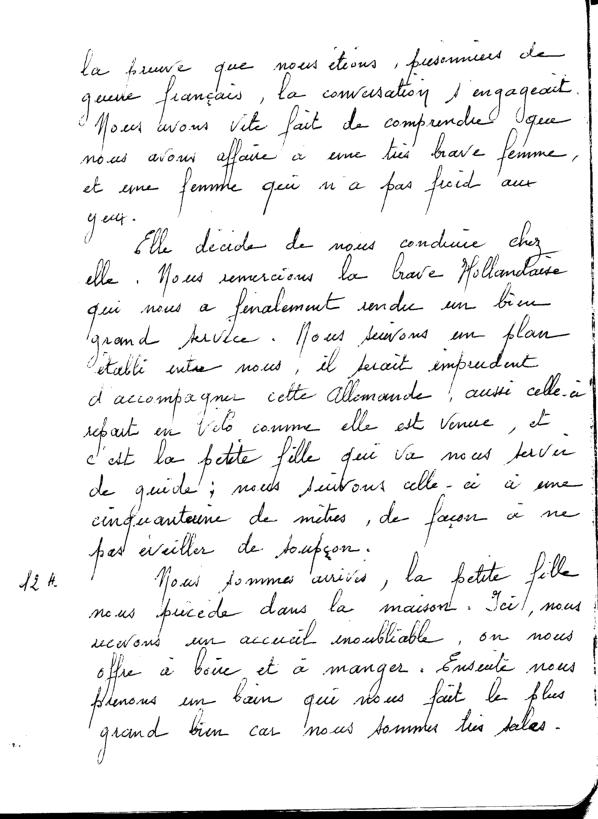 la preuve que nous étions, prisonniers de
guerre français, la conversation s'engageait.
Nous avons vite fait de comprendre que
nous avons affaire à une très brave femme,
et une femme qui n'a pas froid aux
yeux.
Elle décide de nous conduire chez
elle. Nous remercions la brave Hollandaise
qui nous a finalement rendu un bien
grand service. Nous suivons un plan
établi entre nous, il serait imprudent
d'accompagner cette Allemande, aussi celle-ci
repart en vélo comme elle est venue, et
c'est la petite fille qui va nous servir
de guide; nous suivons celle-ci à une
cinquantaine de mètres, de façon à ne
pas éveiller de soupçon.
12 h. Nous sommes arrivés, la petite fille
nous précède dans la maison. Ici, nous
recevons un accueil inoubliable, on nous
offre à boire et à manger. Ensuite nous
prenons un bain qui nous fait le plus
grand bien car nous sommes très sales.